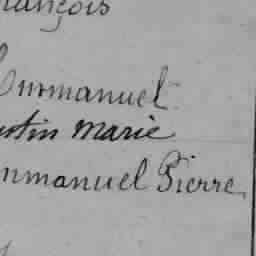 rançois
Emmanuel
ustin Marie
mmanuel Pierre